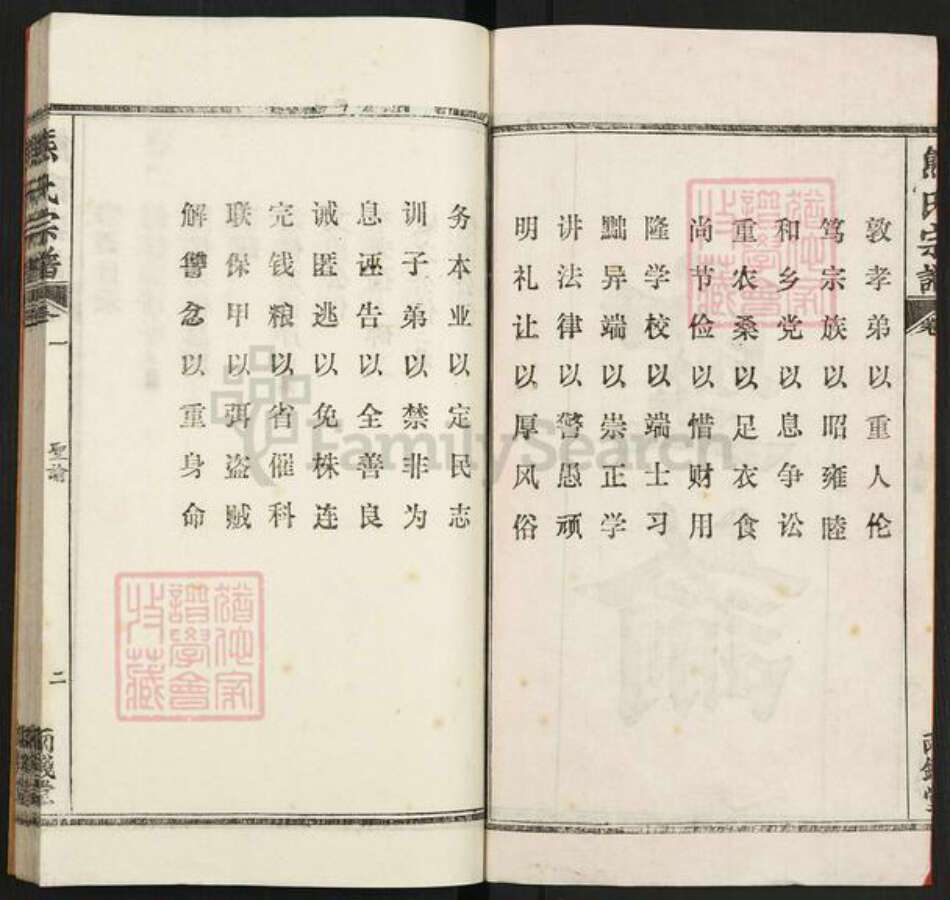 敦孝弟以重人伦
笃宗族以昭雍睦
和乡党以息争讼
重农桑以足衣食
尚节俭以惜财用
隆学校以端士习
黜异端以崇正学
讲法律以警愚顽
明礼让以厚风俗
务本业以定民志
训子弟以禁非为
息诬告以全善良
诫匿逃以免株连
完钱粮以省催科
联保甲以弭盗贼
解讐忿以重身命
熊氏宗譜
卷一
聖諭
二
熊氏宗譜
卷
FamilySearch